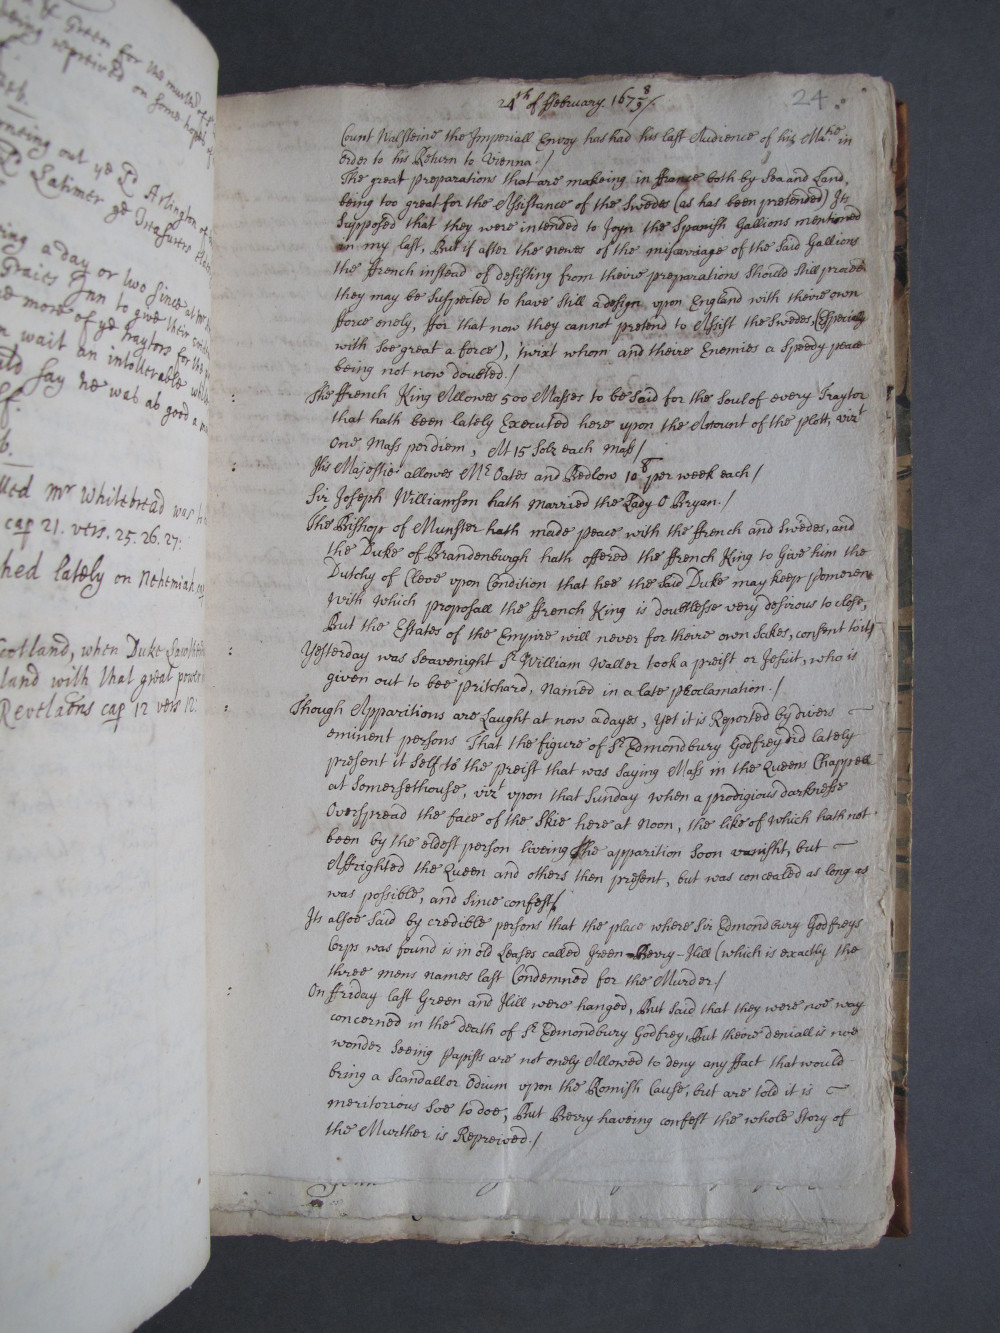 & Green for the murther of S
being repreived on some hopes of
orneing out ye Ld Arlington of
Ld Latimer ye Treasurers
ving a day or two since at Mr
Graies Inn to give their
more of ye Traytors for the
n wait an intollerable
uld say he was as good a
lf.
b.
lled Mr Whitebread was
cap 21. vers. 25. 26. 27:
hed lately on Nehemiah
cotland, when Duke
land with that great power
Revelacons cap 12 vers 12:
24th of ffebruary. 167 8/9 /.
24.
Count Walsteine the Imperiall Envoy has had his last Audience of his Matie in
order to his Return to Vienna./
The great preparations that are makeing in ffrance both by Sea and Land,
being too great for the Assistance of the Swedes (as has been pretended) Its
Supposed that they were intended to Joyn the Spanish Gallions mentioned
in my last, But if after the newes of the miscarriage of the said Gallions
the ffrench instead of desisting from theire preparations should still proceed
they may be suspected to have still a design upon England with theire own
fforce onely, ffor that now they cannot pretend to Assist the Swedes, (Especially
with soe great a force), twixt whom and theire Enemies a Speedy peace
being not now doubted./
The ffrench King Allowes 500 Masses to be said for the Soul of every Traytor
that hath been lately Executed here upon the Account of the plott, vizt
one Mass per diem, At 15 Solz each Mass/
His Majestie allowes Mr Oates and Bedlow 10 s per week each/
Sir Joseph Williamson hath married the Lady O Bryan./
The Bishop of Munster hath made peace with the ffrench and Swedes, and
the Duke of Brandenburgh hath offered the ffrench King to Give him the
Dutchy of Cleve upon Condition that hee the said Duke may keep Pomeren
with which proposall the ffrench King is doubtlesse very desirous to close,
But the Estates of the Empire will never for theire own Sakes, consent to it
Yesterday was Seavenight Sr William Waller took a preist or Jesuit, who is
given out to bee Pritchard, Named in a late Proclamation./
Though Apparitions are Laught at now adayes, Yet it is Reported by divers
eminent persons That the figure of Sr Edmondbury Godfrey did lately
present it self to the Preist that was saying Mass in the Queens Chappell
at Somersethouse, vizt upon that Sunday when a prodigious darknesse
Overspread the face of the Skie here at Noon, the like of which hath not
been by the eldest person liveing The apparition soon vanisht, but
Affrighted the Queen and others then present, but was concealed as long as
was possible, and since confest/
Its alsoe said by credible persons that the place where Sir Edmondbury Godfreys
Corps was found is in old Leases called Green-Berry-Hill (which is exactly the
three mens names last Condemned for the Murder/
On ffriday last Green and Hill were hanged, But said that they were noe way
concerned in the death of Sr Edmondbury Godfrey, But theire deniall is noe
wonder Seeing Papists are not onely Allowed to deny any ffact that would
bring a Scandall or Odium upon the Romish Cause, but are told it is
meritorious soe to doe, But Berry haveing confest the whole Story of
the Murther is Repreived./